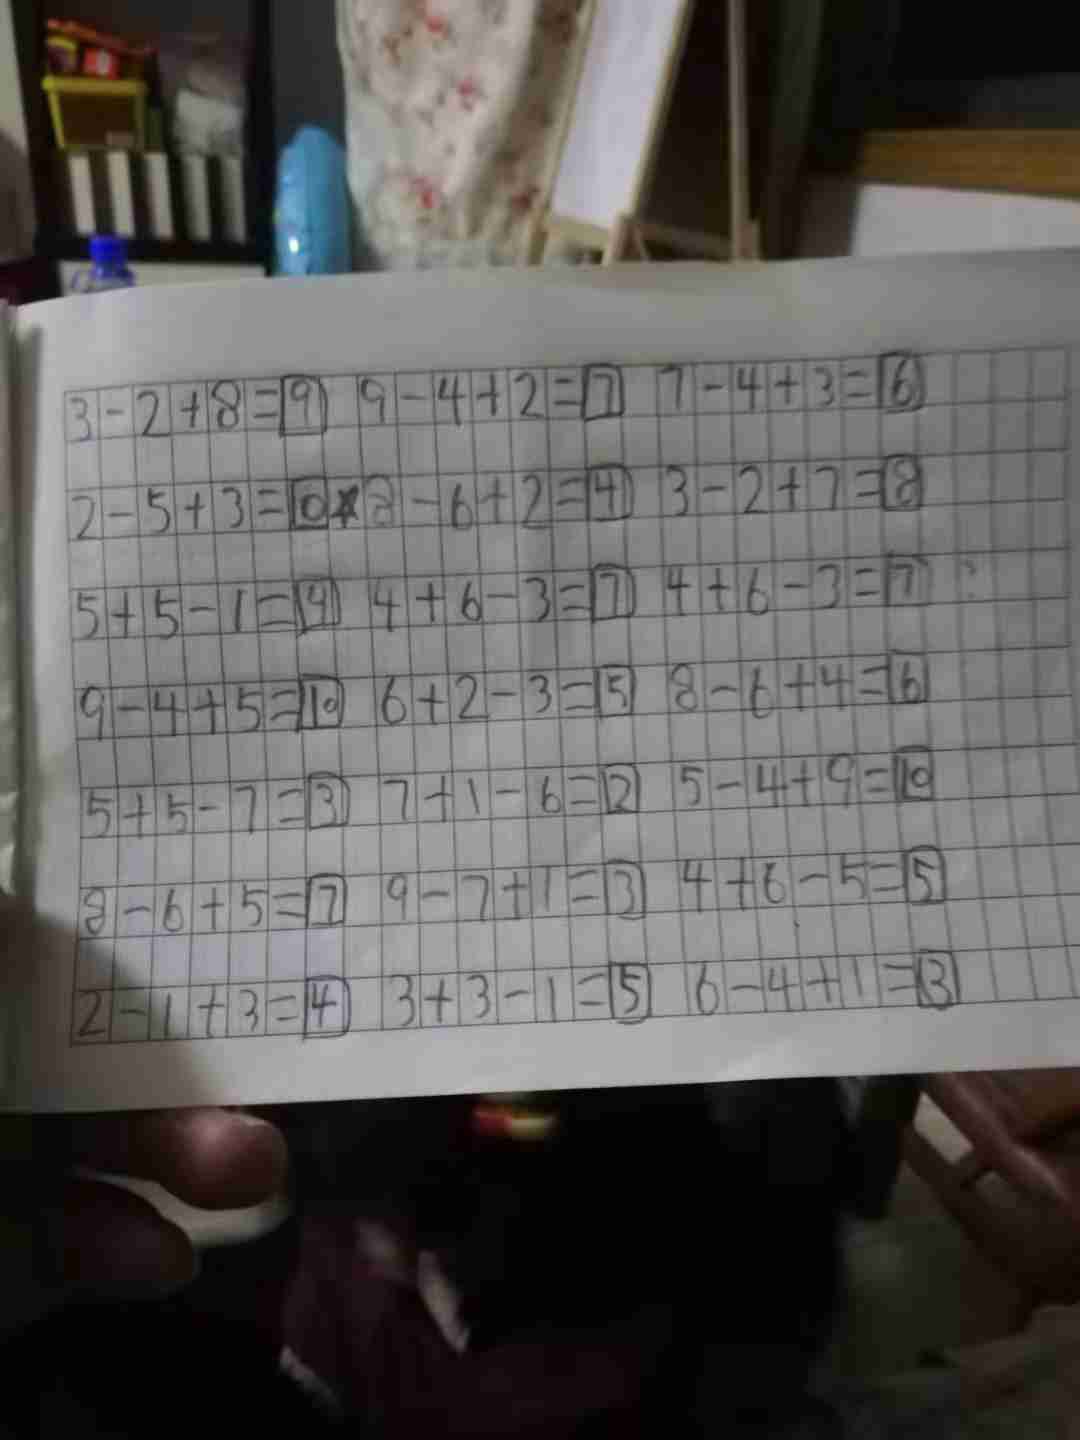 3-2+8=9 9-4+2=7 7-4+3=6
2-5+3=0★8-6+2=4 3-2+7=8
5+5-1=9 4+6-3=7 4+6-3=7
9-4+5=10 6+2-3=5 8-6+4=6
5+5-7=3 7+1-6=2 5-4+9=10
8-6+5=7 9-7+1=3 4+6-5=5
2-1+3=4 3+3-1=5 6-4+1=3